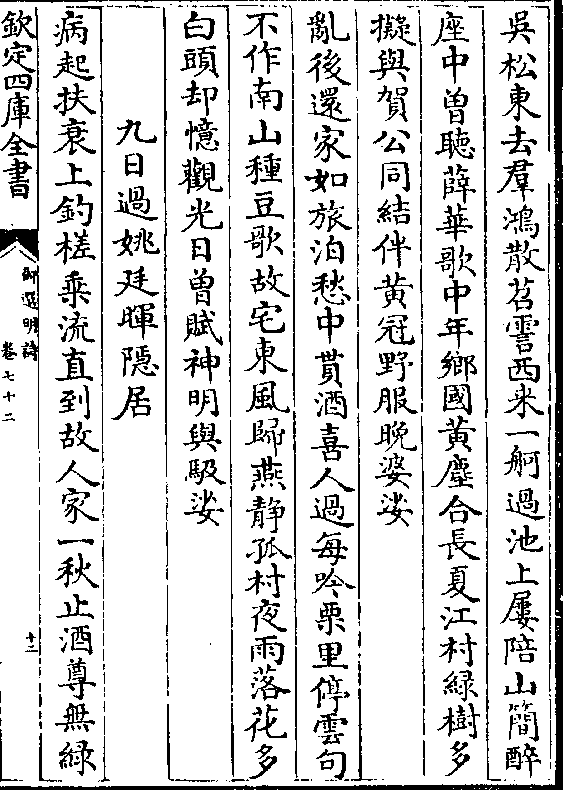 吳松東去羣鴻散苕霅西来一舸過池上屢陪山簡醉
座中曽聽薛華歌中年鄉國黄塵合長夏江村緑樹多
擬與賀公同結伴黄冠野服晩婆娑
亂後還家如旅泊愁中貰酒喜人過每吟栗里停雲句
不作南山種豆歌故宅東風歸燕静孤村夜雨落花多
白頭却憶觀光日曽賦神明與馺娑
九日過姚廷暉隠居
病起扶衰上釣槎乗流直到故人家一秋止酒尊無緑
欽定四庫全書
御選明詩
卷七十二
十二